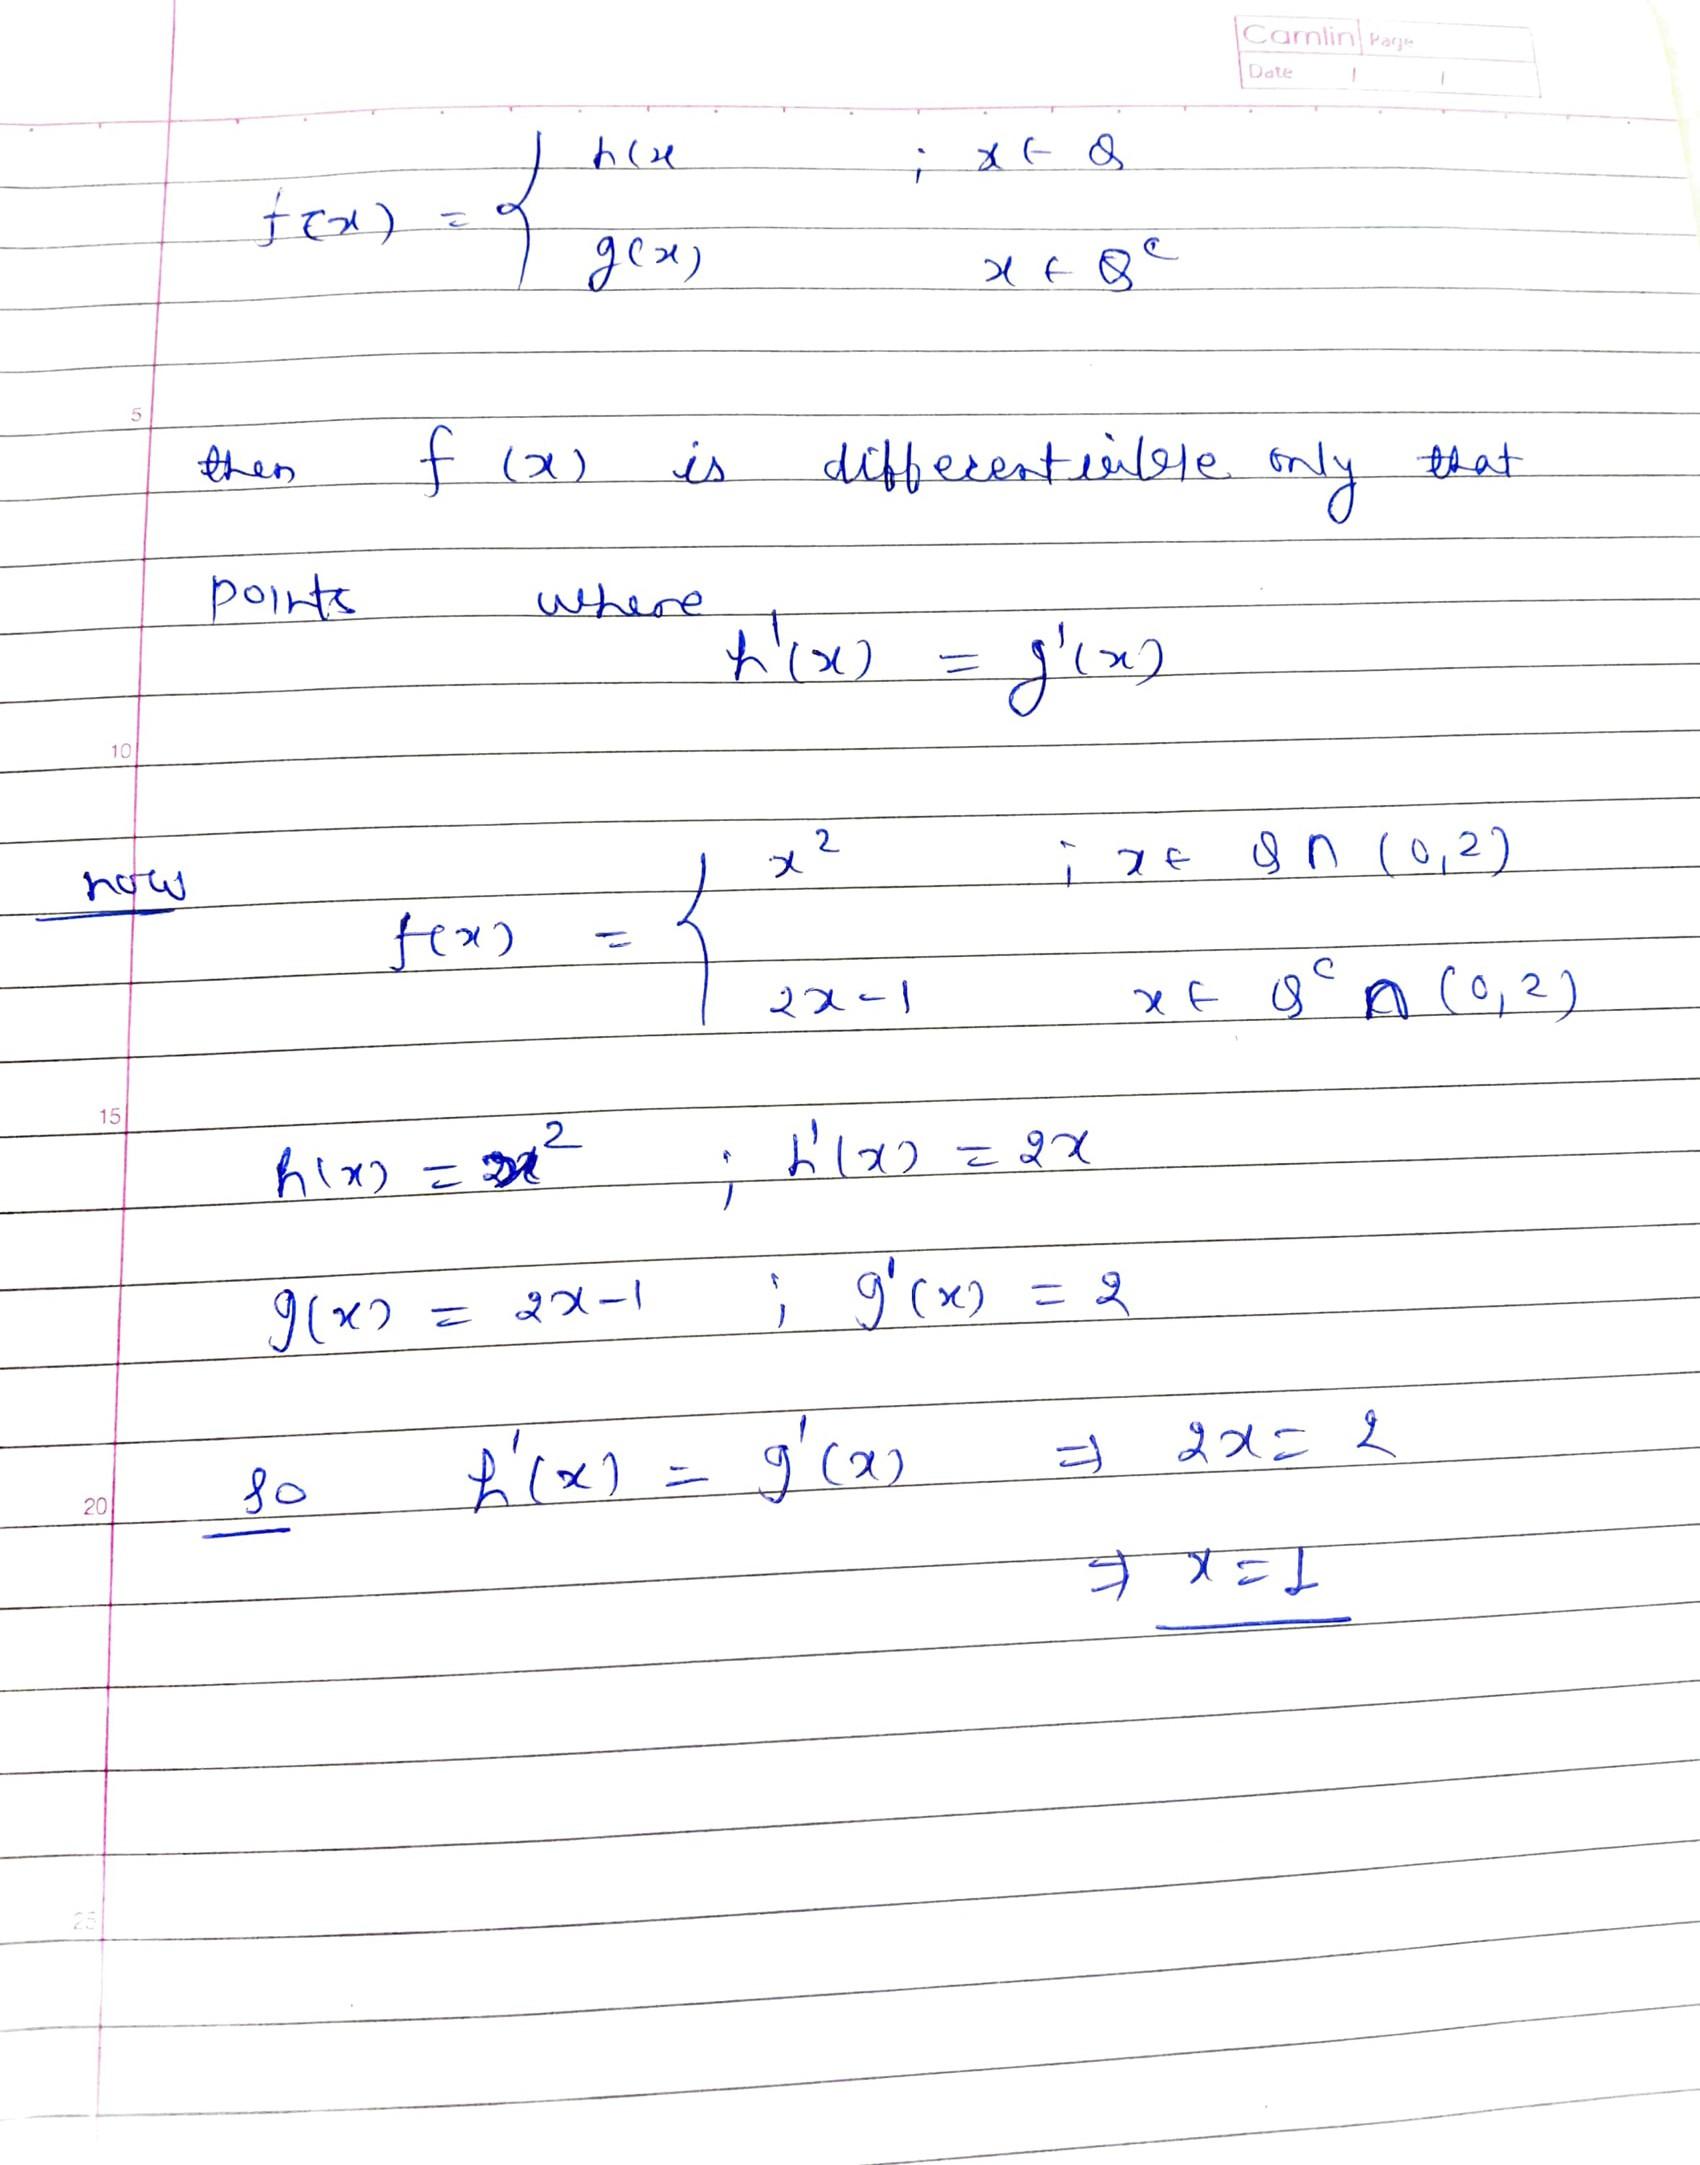 Camlin Page
Date / /
f(x) = { h(x ; x ∈ Q
g(x) x ∈ Q^c
5
then f(x) is differentiable only that
points where
h'(x) = g'(x)
10
now f(x) = { x² ; x ∈ Q ∩ (0,2)
2x-1 x ∈ Q^c ∩ (0,2)
15
h(x) = x² ; h'(x) = 2x
g(x) = 2x-1 ; g'(x) = 2
20
so h'(x) = g'(x) ⇒ 2x = 2
⇒ x = 1
25